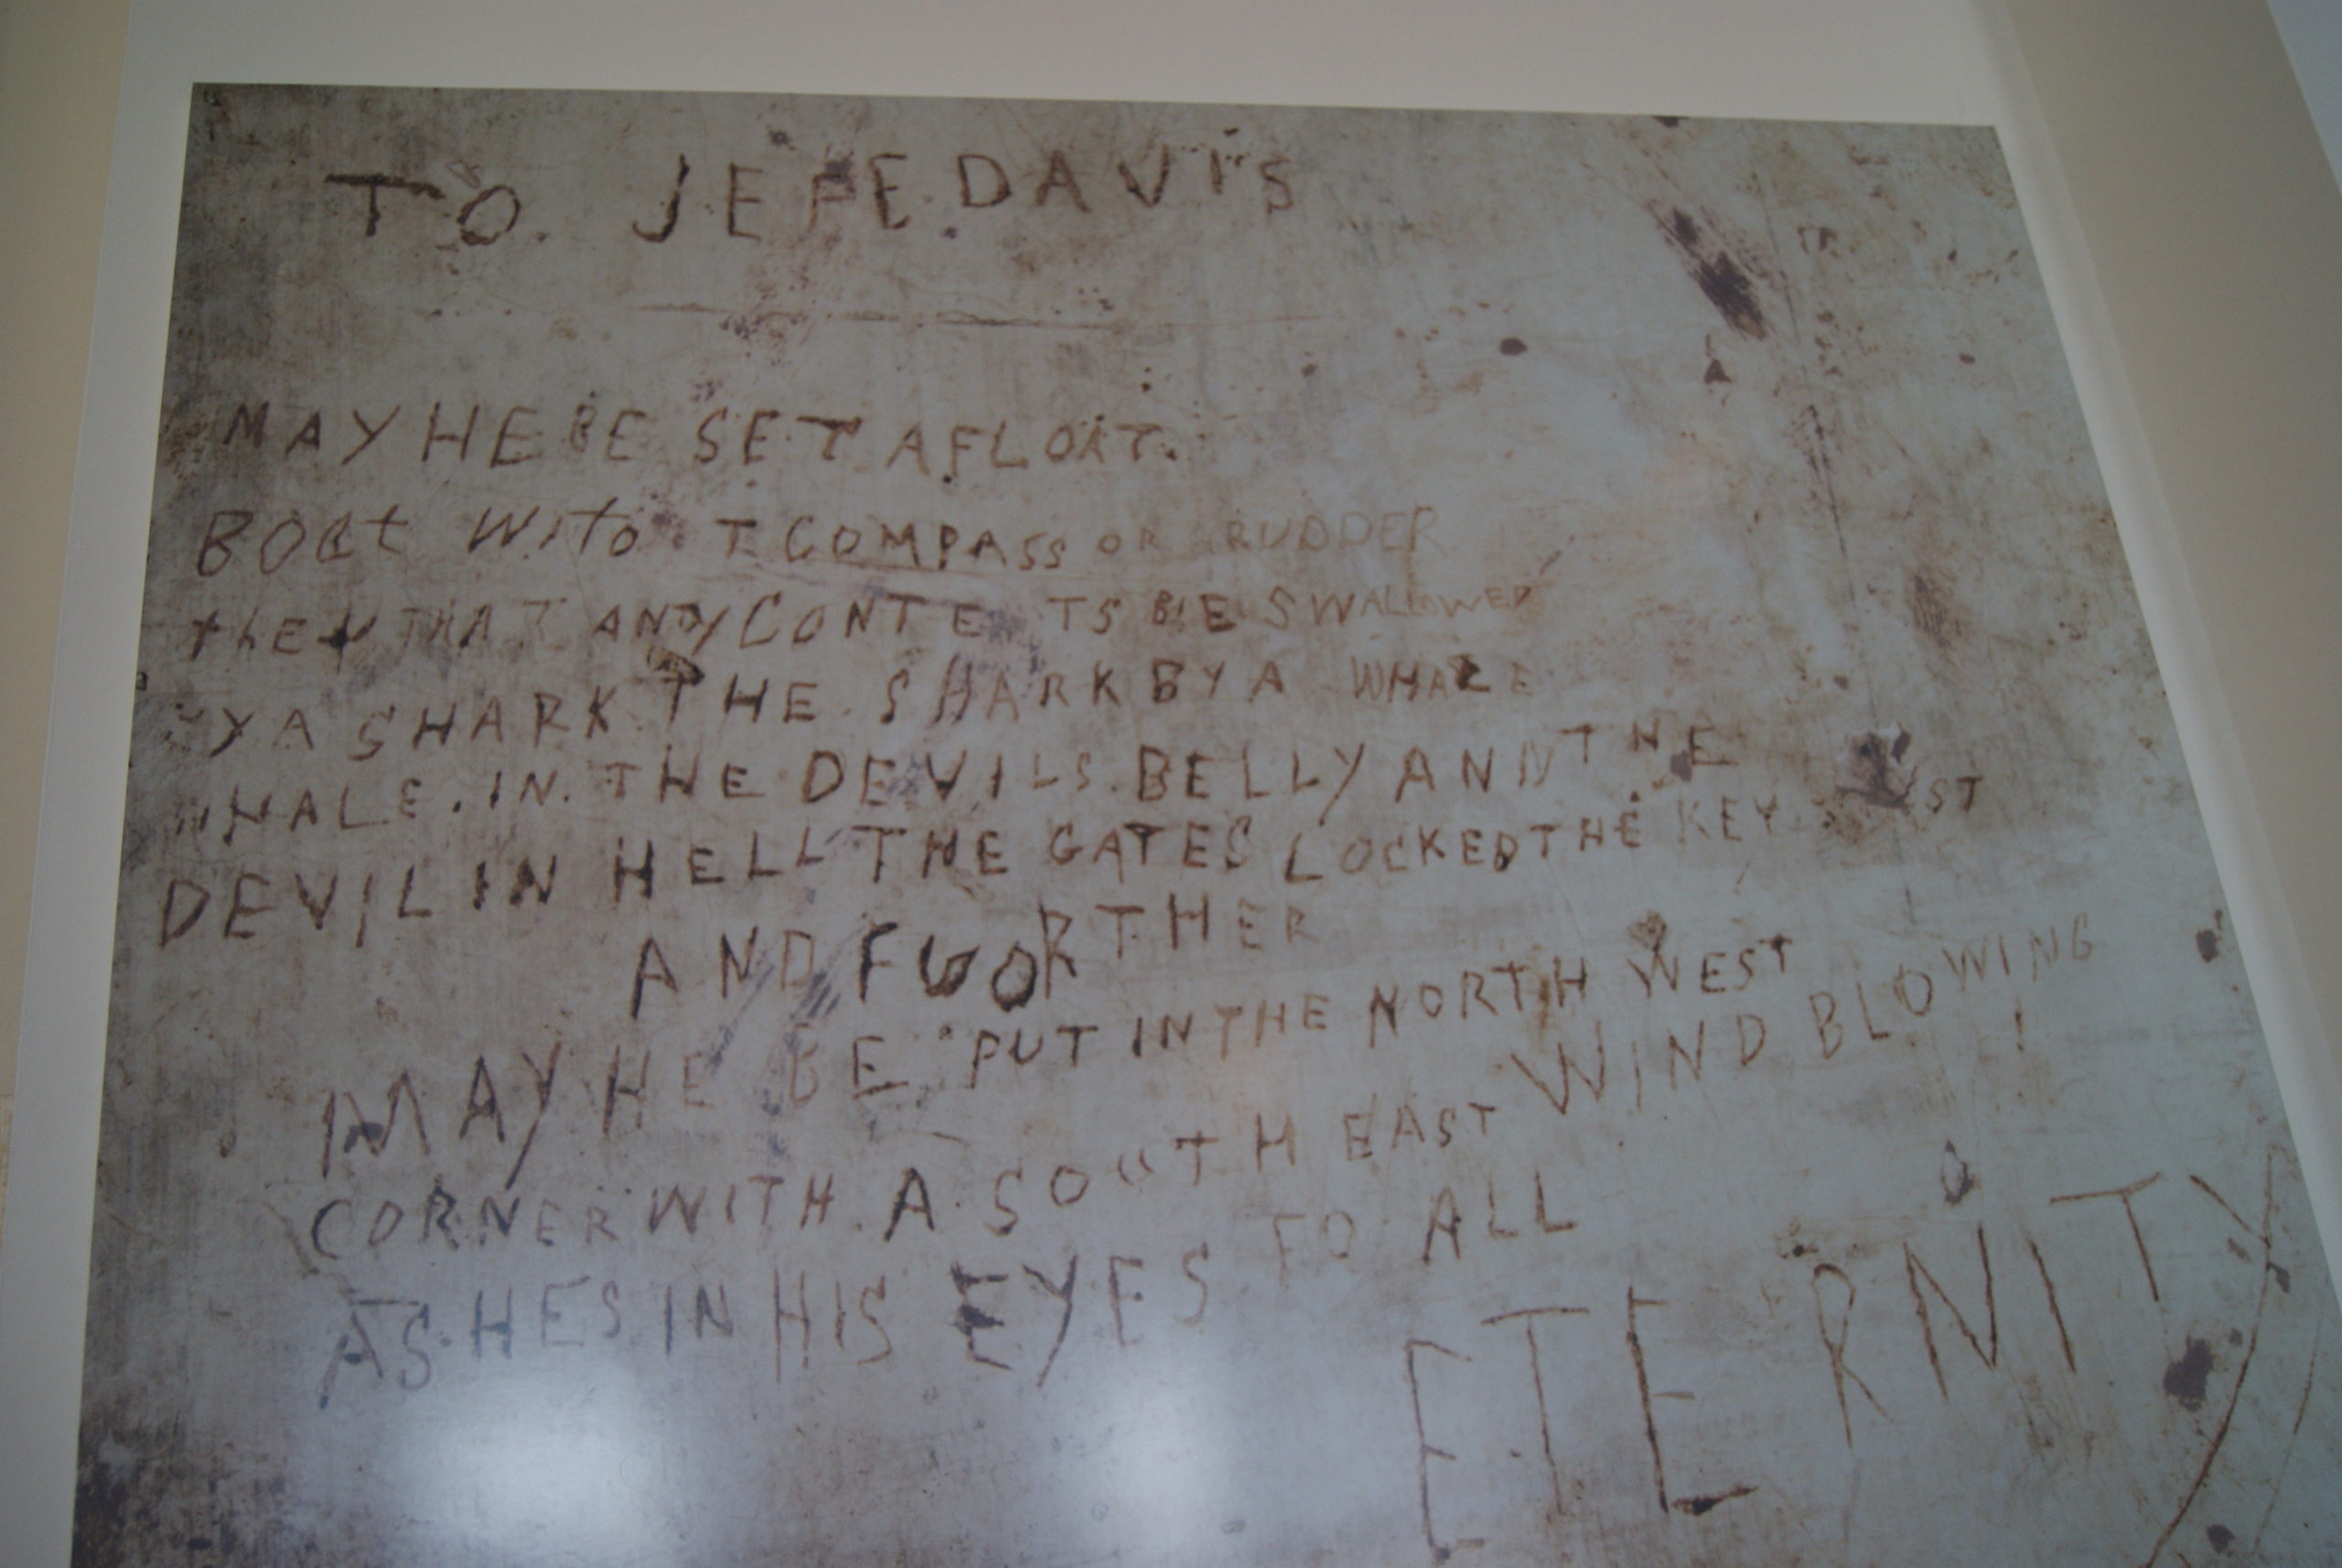 TO. JEFE. DAVIS
MAY HE BE SET AFLOAT.
BOat Wito T COMPASS OR RUDDER
THAT ANDY CONTE TS BE SWALLOWED
YA SHARK THE SHARK BY A WHALE
WHALE. IN. THE DEVILS. BELLY AND THE
DEVIL IN HELL THE GATES LOCKED THE KEY
AND FUORTHER
MAY HE BE PUT IN THE NORTH WEST
CORNER WITH. A. SOUTH EAST WIND BLOWING
ASHES IN HIS EYES TO ALL !
ETERNITY